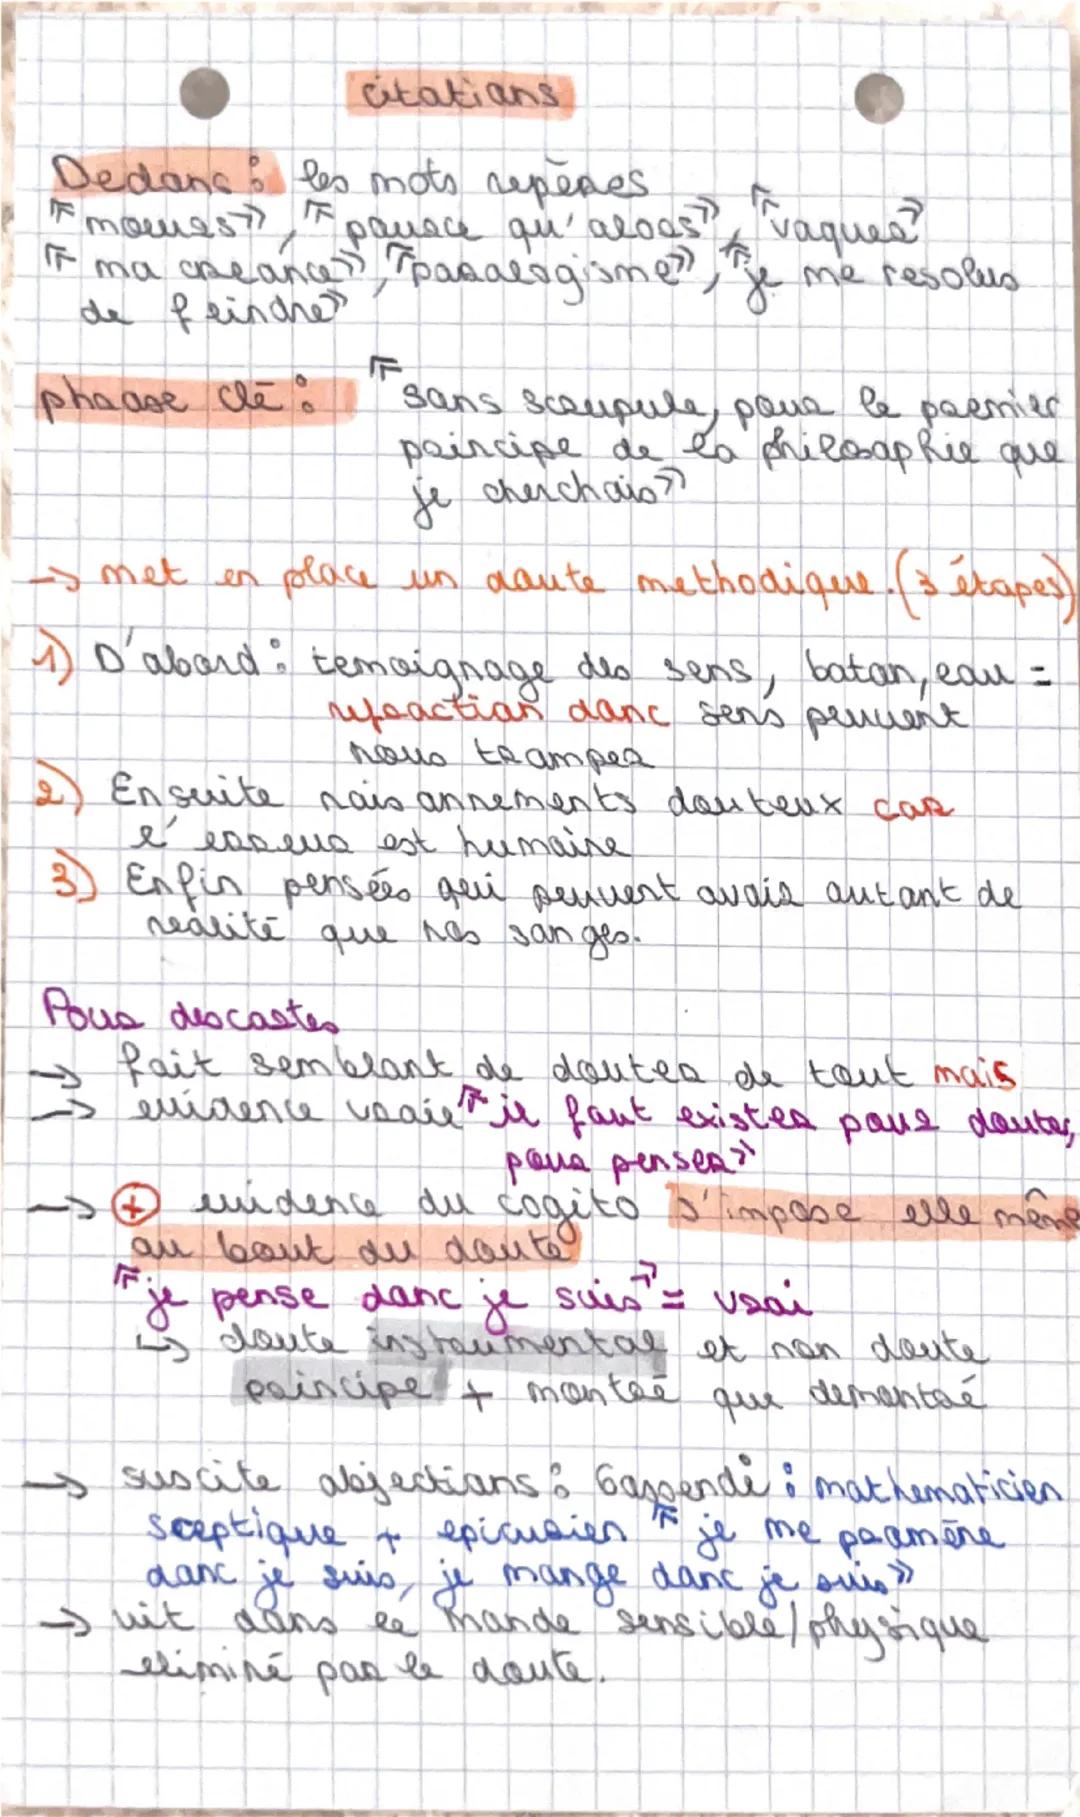 citations
Dedans : les mots repères
"mœurs", "pource qu'alors", "vaquer"
"ma créance", "paralogisme", "je me resolus
de feindre"
phrase clé : "sans scrupule, pour le premier
principe de la philosophie que
je cherchais"
→ met en place un doute methodique. (3 étapes)
1) D'abord : temoignage des sens, baton, eau =
refraction donc sens peuvent
nous tromper
2) Ensuite raisonnements douteux car
l'erreur est humaine
3) Enfin pensées qui peuvent avoir autant de
réalité que nos songes.
Pour descartes
→ fait semblant de douter de tout mais
→ evidence vraie "il faut exister pour douter,
pour penser"
→ + evidence du cogito s'impose elle même
au bout du doute
"je pense donc je suis" = vrai
↳ doute instrumental et non doute
principe + montré que demontré
→ suscite objections : Gassendi : mathematicien
sceptique + epicurien "je me promène
donc je suis, je mange donc je suis"
→ vit dans le monde sensible/physique
eliminé par le doute.